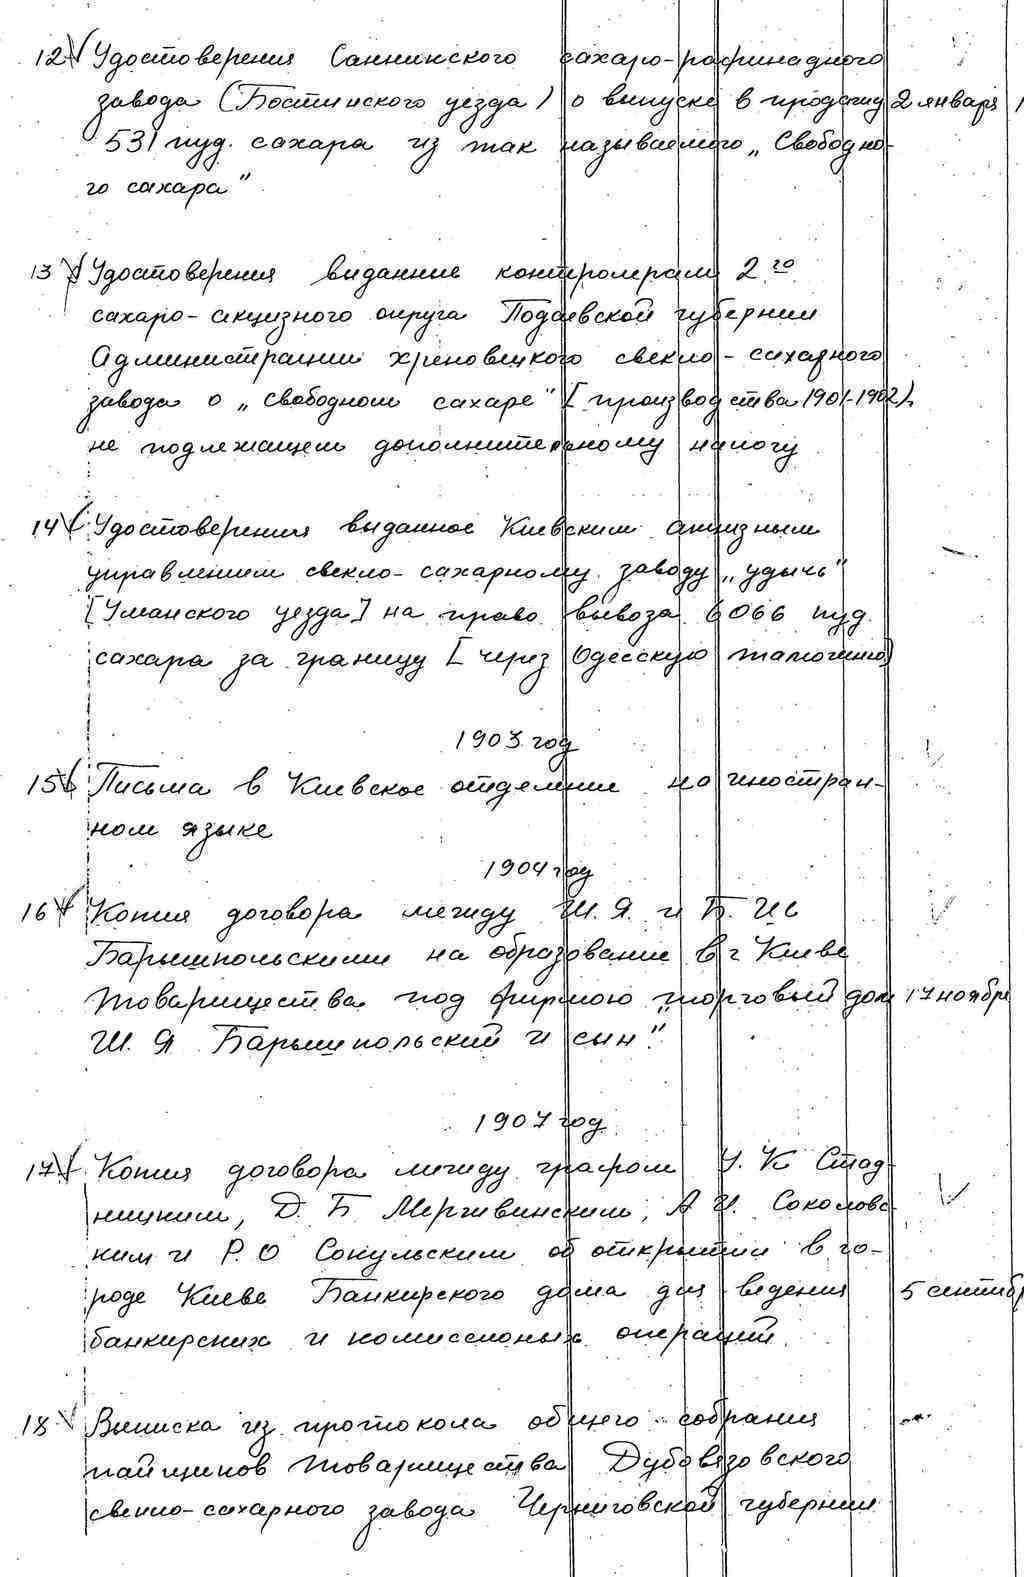 12 Удостоверения Саннинского сахаро-рафинадного
завода (Бостинского уезда) о выпуске в продажу 2 января
531 пуд. сахара из так называемого „Свободно-
го сахара"
13 Удостоверения виданние контролерам 2го
сахаро-акцизного округа Подаевской губернии
Администрации хреновецкого свекло-сахарного
завода о „свободном сахаре" [производства 1901-1902).
не подлежащем дополнительному налогу
14 Удостоверения выданное Киевским акцизным
управлением свекло-сахарному заводу „удычь"
[Уманского уезда] на право вывоза 6066 пуд.
сахара за границу [через Одесскую таможню]
1903 год
15 Письма в Киевское отделение на иностран-
ном языке
1904 год
16 Копия договора между Ш. Я. и Б. Ис
Барышпольскими на образование в г Киеве
товарищества под фирмою „торговый дом 17 ноябре
Ш. Я Барышпольский и сын".
1907 год
17 Копия договора между графом У. К Стад
ницким, Д. Б Мерживинским, А И. Соколовс
ким и Р. О Сокульским об открытии в го-
роде Киеве Банкирского дома для ведения 5 сентяб
банкирских и комиссионых операций
18 Выписка из протокола общего собрания
пайщиков товарищества Дубовязовского
свекло-сахарного завода Черниговской губернии